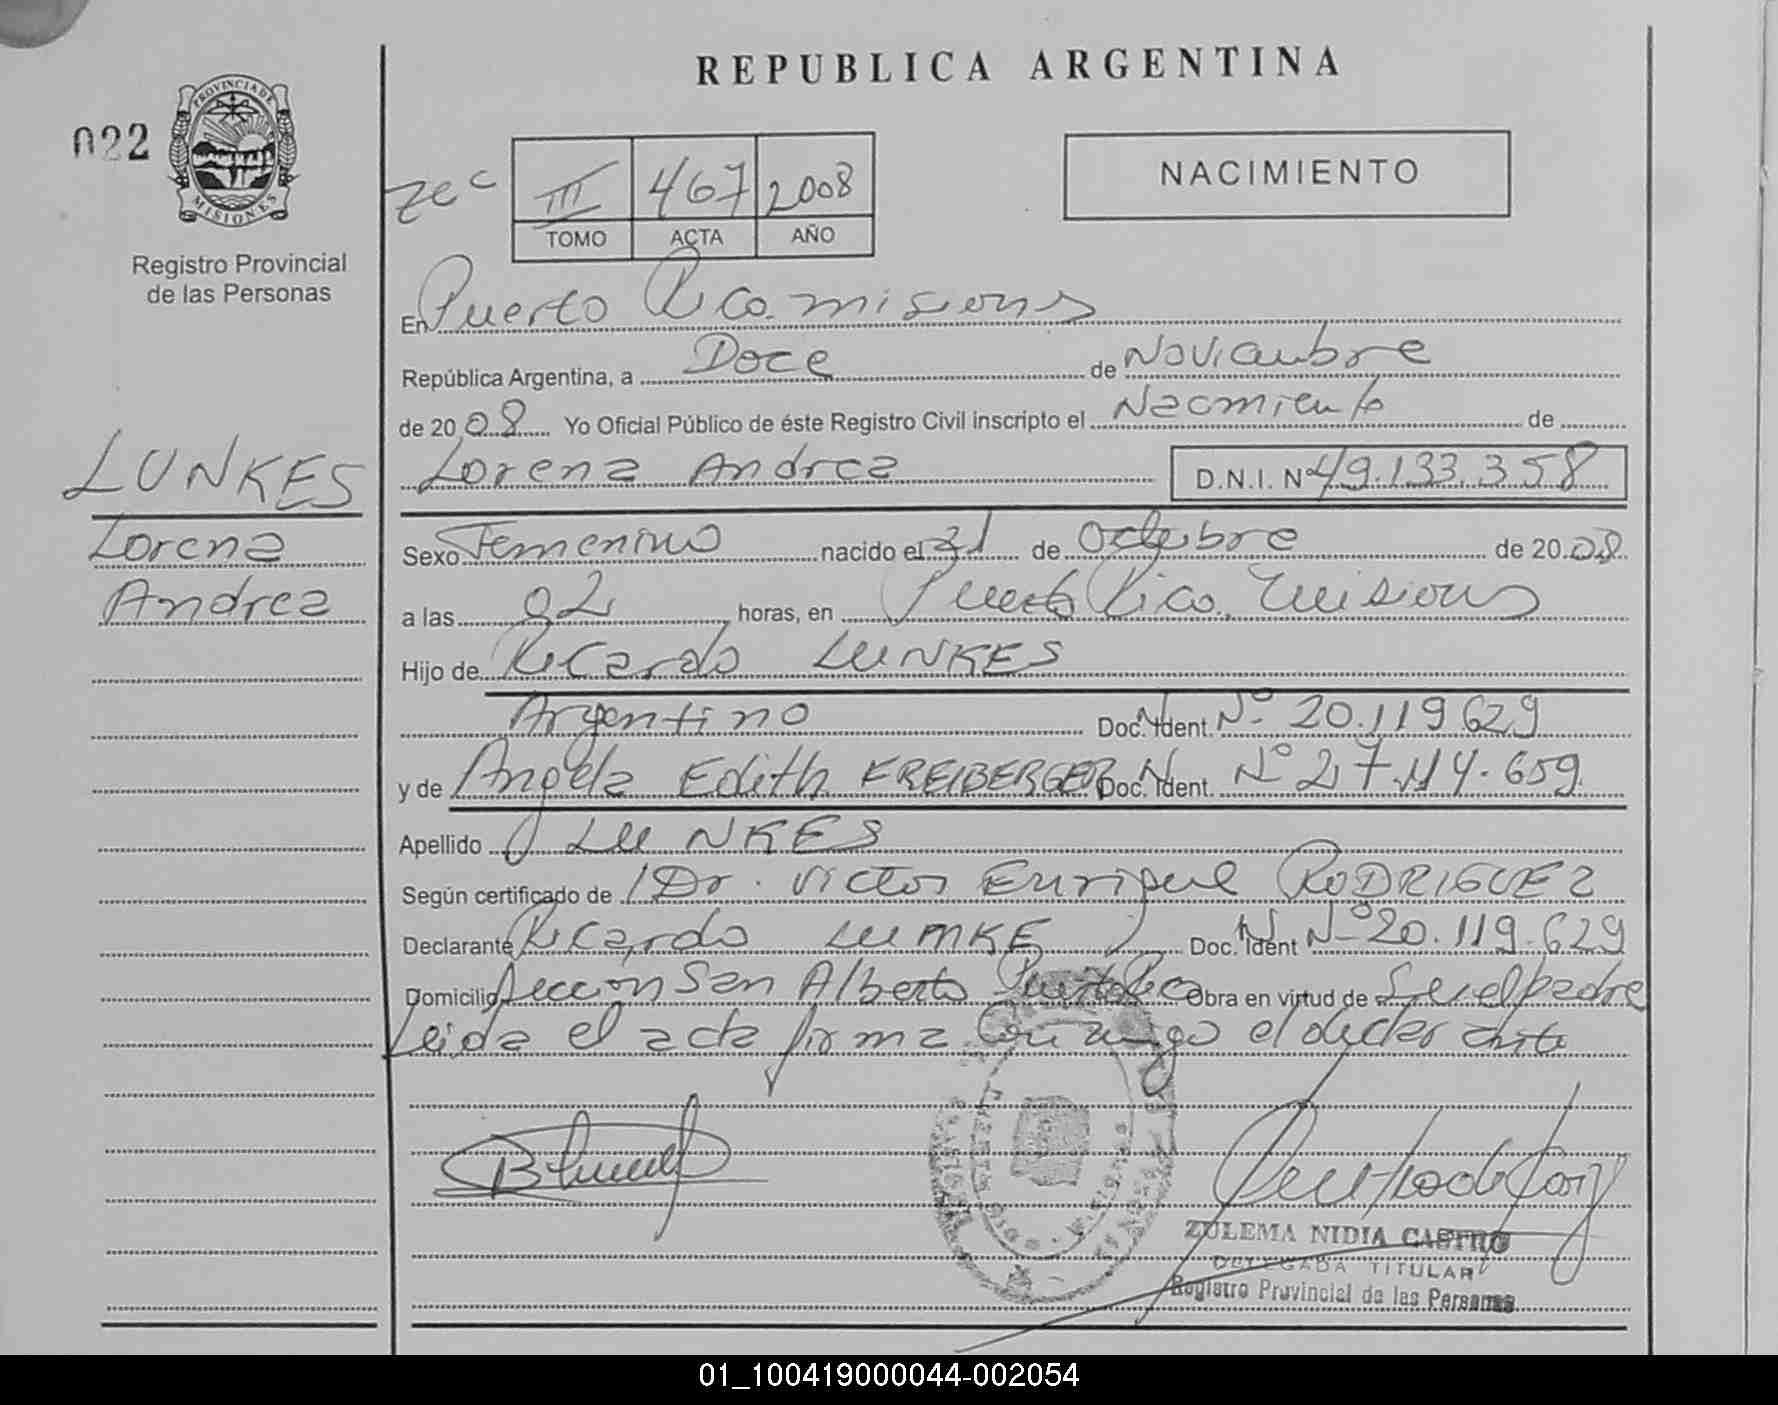 REPUBLICA ARGENTINA
022
PROVINCIA DE
MISIONES
Registro Provincial
de las Personas
III 467 2008
TOMO ACTA AÑO
NACIMIENTO
En Puerto Rico misiones
República Argentina, a Doce de Noviembre
de 2008 Yo Oficial Público de éste Registro Civil inscripto el Nacimiento de
LUNKES
Lorena
Andrea
Lorena Andrea D.N.I. Nº 49.133.358
Sexo Femenino nacido el 31 de Octubre de 2008
a las 02 horas, en Puerto Rico, Misiones
Hijo de Ricardo LUNKES
Argentino Doc. Ident. Nº 20.119629
y de Angela Edith FREIBERGER Doc. Ident. Nº 27.114.659
Apellido LUNKES
Según certificado de Dr. Victor Enrique RODRIGUEZ
Declarante Ricardo LUMKE Doc. Ident Nº 20.119.629
Domicilio Seccion San Alberto Puerto Rico Obra en virtud de Ser el padre
Leida el acta firma conmigo el declarante
ZULEMA NIDIA CASTRO
DELEGADA TITULAR
Registro Provincial de las Personas
01_100419000044-002054